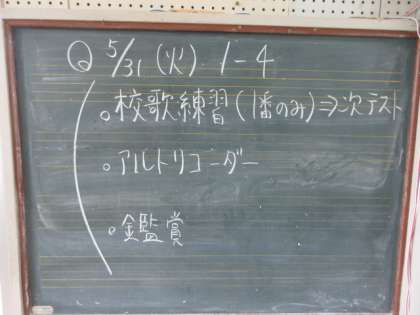 ② 5/31 (火) 1-4
。校歌練習(1番のみ)⇒次テスト
。アルトリコーダー
。鑑賞